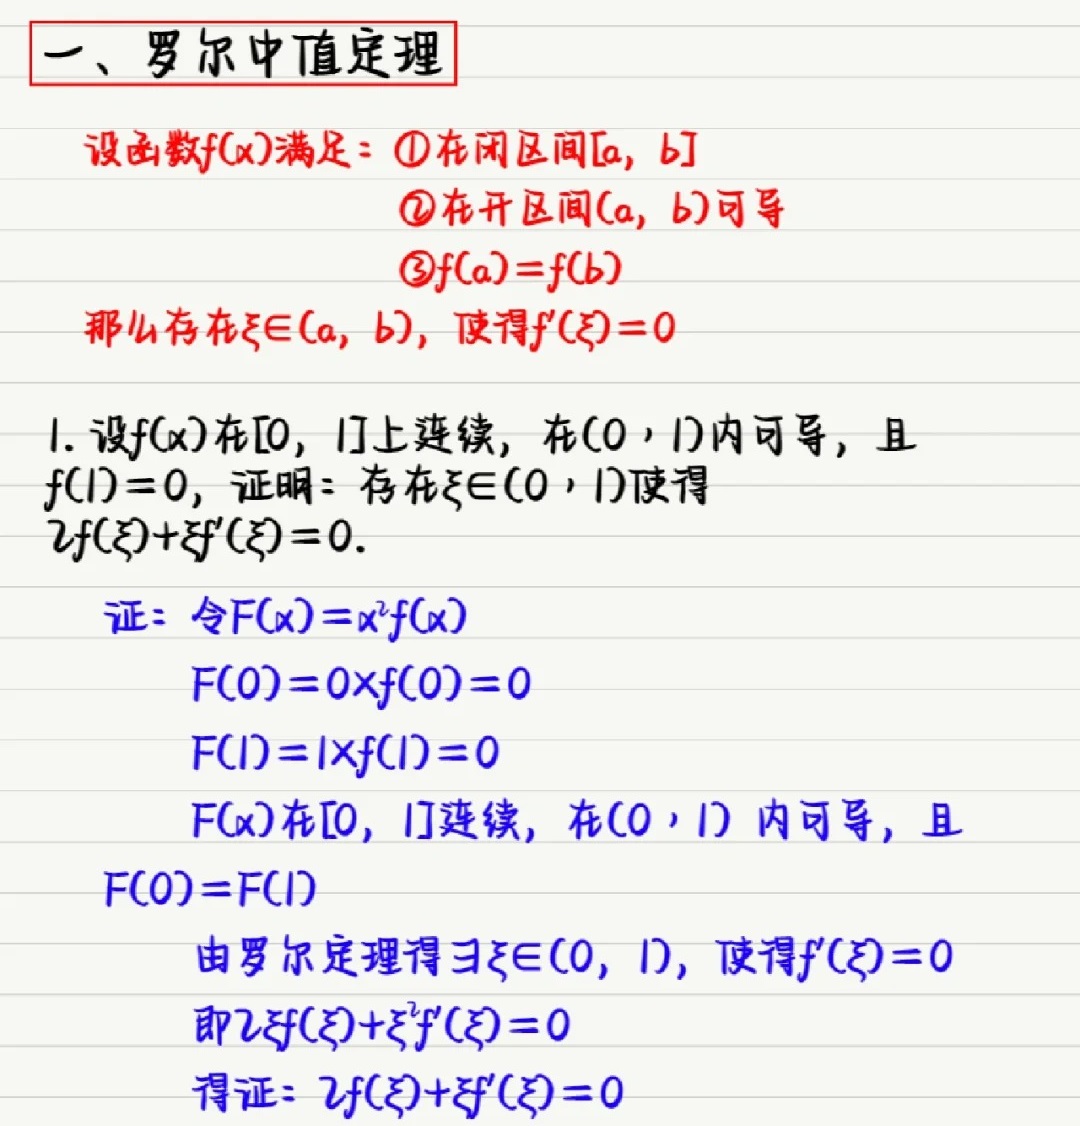 一、罗尔中值定理
设函数f(x)满足：①在闭区间[a，b]
②在开区间(a，b)可导
③f(a)=f(b)
那么存在ξ∈(a，b)，使得f′(ξ)=0
1. 设f(x)在[0，1]上连续，在(0，1)内可导，且
f(1)=0，证明：存在ξ∈(0，1)使得
2f(ξ)+ξf′(ξ)=0.
证：令F(x)=x²f(x)
F(0)=0×f(0)=0
F(1)=1×f(1)=0
F(x)在[0，1]连续，在(0，1) 内可导，且
F(0)=F(1)
由罗尔定理得∃ξ∈(0，1)，使得f′(ξ)=0
即2ξf(ξ)+ξ²f′(ξ)=0
得证：2f(ξ)+ξf′(ξ)=0